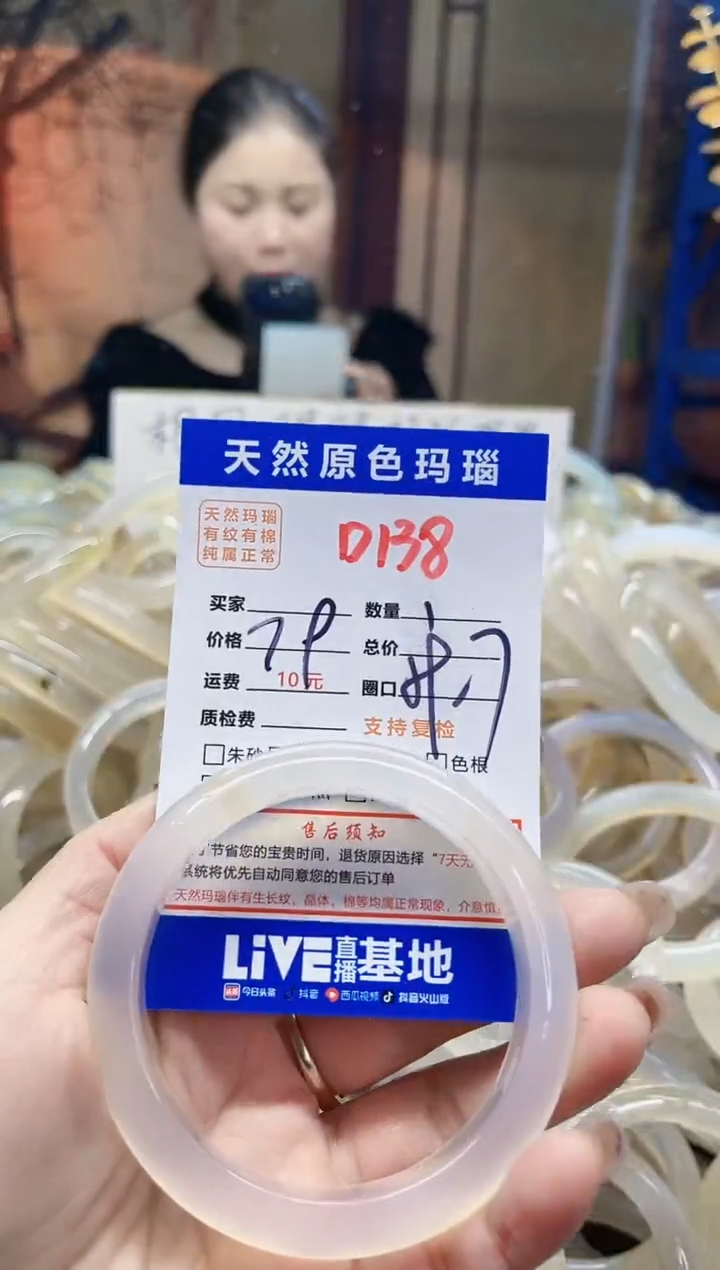 天然原色玛瑙
天然玛瑙
有纹有棉
纯属正常
D138
买家
数量
价格
总价
运费 10元
圈口
质检费
支持复检
朱砂
色根
售后须知
节省您的宝贵时间，退货原因选择“7天无
系统将优先自动同意您的售后订单
天然玛瑙伴有生长纹、晶体、棉等均属正常现象，介意慎
LiVE直播基地
头条 今日头条 抖音 西瓜视频 抖音火山版